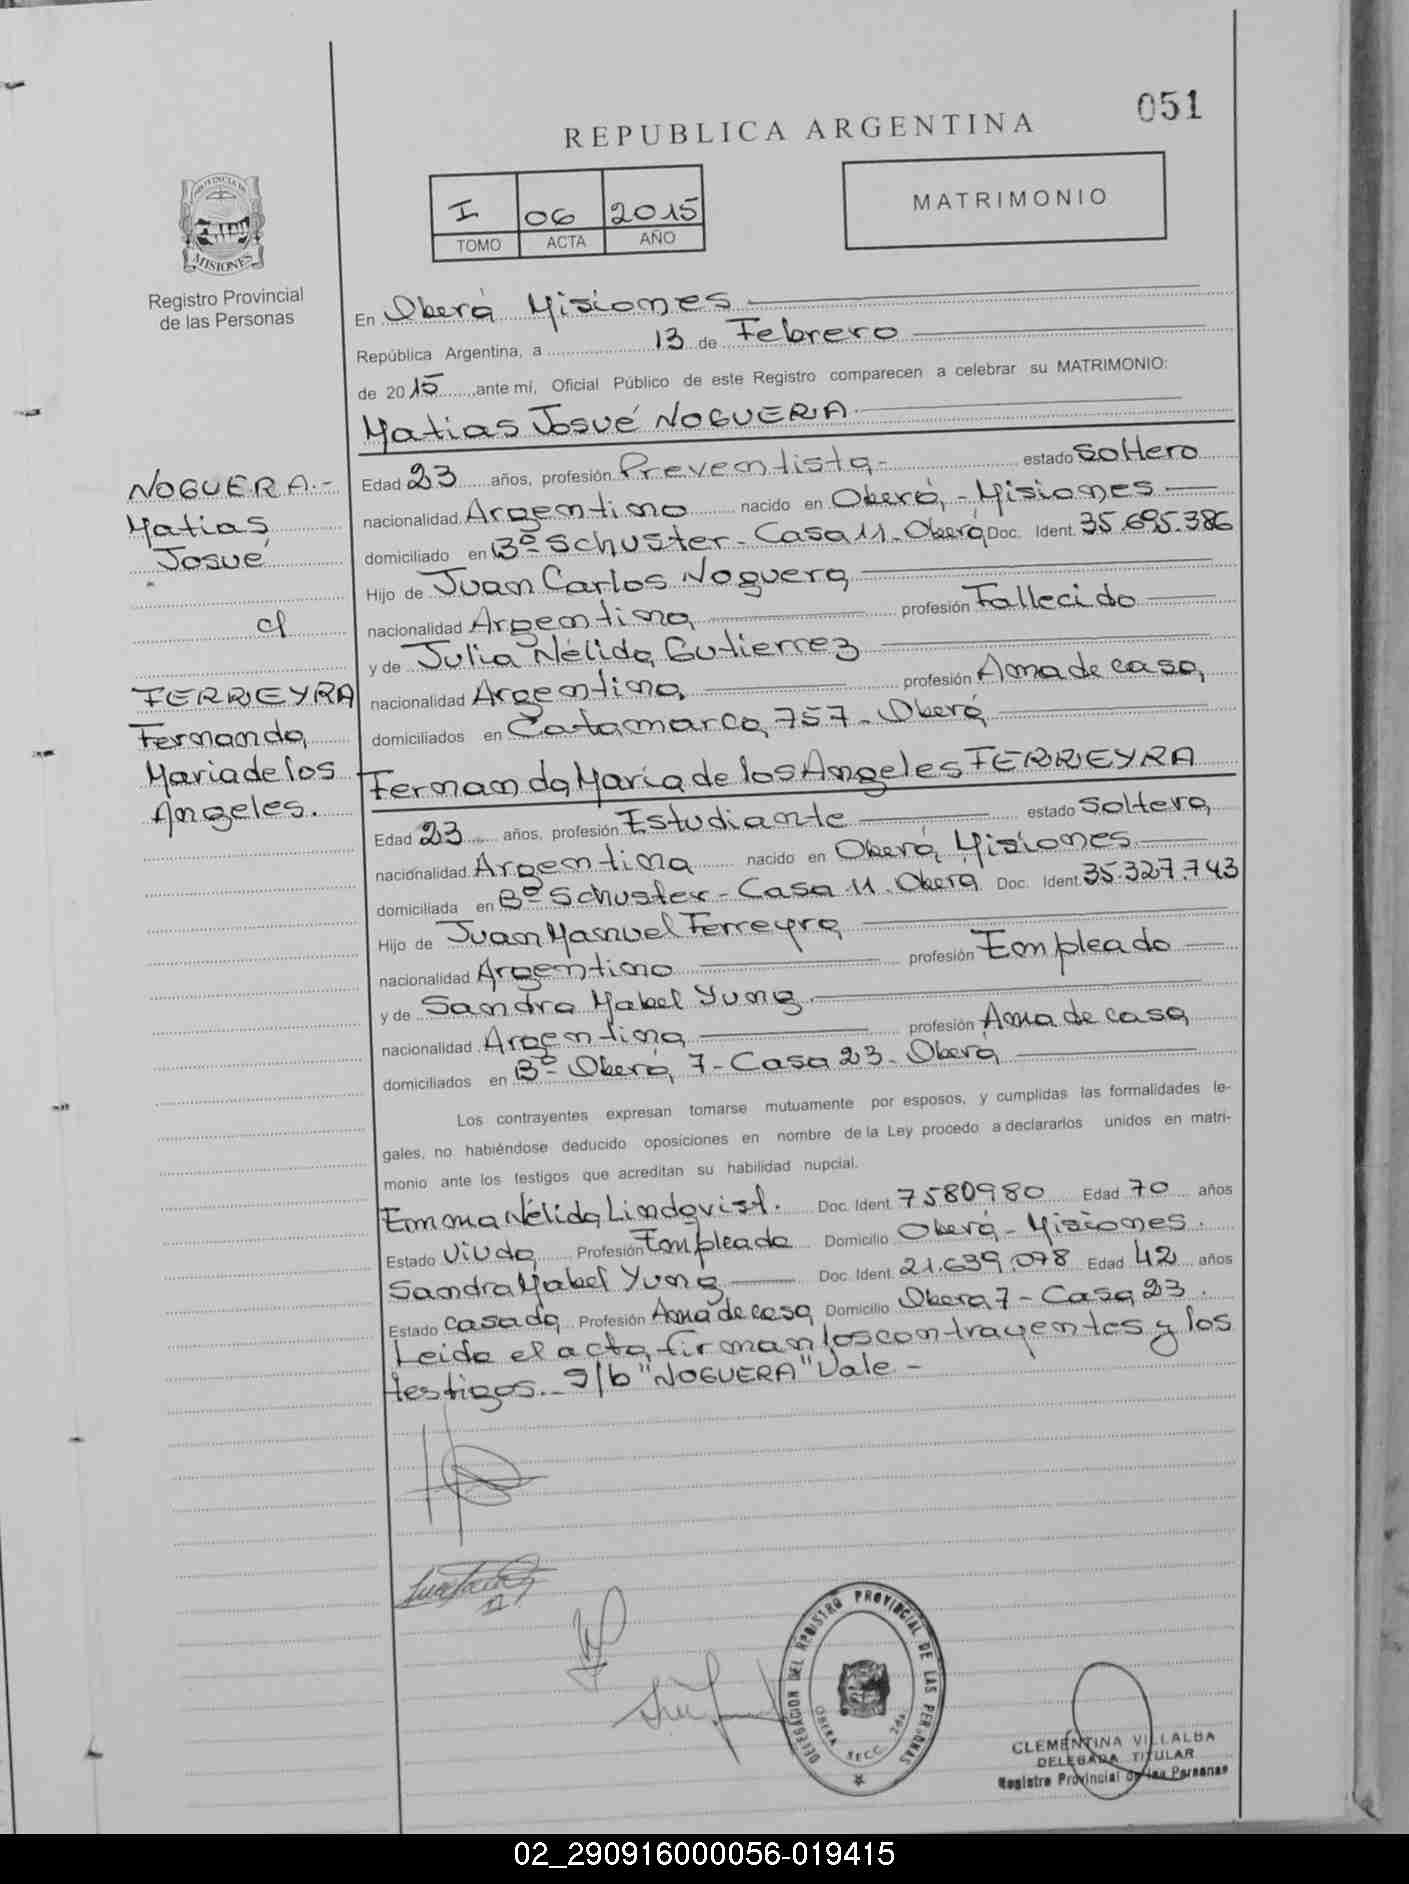 051
REPUBLICA ARGENTINA
I 06 2015
TOMO ACTA AÑO
MATRIMONIO
PROVINCIA DE
MISIONES
Registro Provincial
de las Personas
En Oberá Misiones
República Argentina, a 13 de Febrero
de 2015, ante mí, Oficial Público de este Registro comparecen a celebrar su MATRIMONIO:
Matias Josué NOGUERA
Edad 23 años, profesión Preventista- estado Soltero
nacionalidad Argentino nacido en Oberá, - Misiones
domiciliado en Bº Schuster - Casa 11 - Oberá Doc. Ident. 35.695.386
Hijo de Juan Carlos Noguera
nacionalidad Argentina profesión Fallecido
y de Julia Nélida Gutierrez
nacionalidad Argentina profesión Ama de casa
domiciliados en Catamarca 757 - Oberá
Fernanda María de los Angeles FERREYRA
Edad 23 años, profesión Estudiante estado Soltera
nacionalidad Argentina nacido en Oberá Misiones
domiciliada en Bº Schuster - Casa 11. Oberá Doc. Ident. 35.327.743
Hijo de Juan Manuel Ferreyra
nacionalidad Argentino profesión Empleado
y de Sandra Mabel Yung
nacionalidad Argentina profesión Ama de casa
domiciliados en Bº Oberá 7 - Casa 23 - Oberá
Los contrayentes expresan tomarse mutuamente por esposos, y cumplidas las formalidades le-
gales, no habiéndose deducido oposiciones en nombre de la Ley procedo a declararlos unidos en matri-
monio ante los testigos que acreditan su habilidad nupcial.
Emma Nélida Lindqvist. Doc. Ident. 7580980 Edad 70 años
Estado Viuda Profesión Empleada Domicilio Oberá - Misiones.
Sandra Mabel Yung Doc. Ident. 21.639.078 Edad 42 años
Estado Casada Profesión Ama de casa Domicilio Obera 7 - Casa 23.
Leida el acta, firman los contrayentes y los
testigos. - s/b "NOGUERA" Vale -
NOGUERA.-
Matias
Josué
c/
FERREYRA
Fernanda
Maria de los
Angeles.
DELEGACION DEL REGISTRO PROVINCIAL DE LAS PERSONAS
OBERA SECC.
CLEMENTINA VILLALBA
DELEGADA TITULAR
Registro Provincial de las Personas
02_290916000056-019415